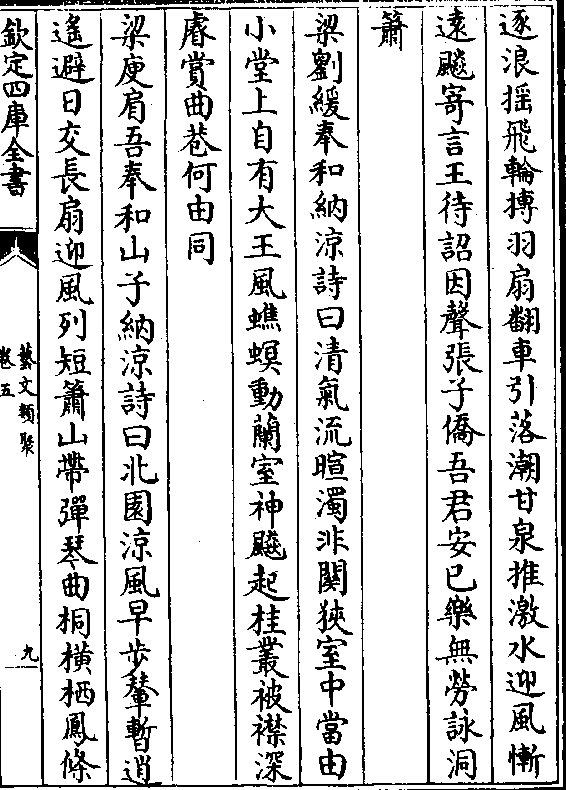 逐浪揺飛輪摶羽扇翻車引落潮甘泉推激水迎風慚
遠飈寄言王待詔因聲張子僑吾君安已樂無勞詠洞
簫
梁劉緩奉和納涼詩曰清氣流暄濁非關狹室中當由
小堂上自有大王風蟭螟動蘭室神飈起桂叢被襟深
睿賞曲巷何由同
梁庾肩吾奉和山子納涼詩曰北園涼風早步輦暫逍
遙避日交長扇迎風列短簫山帶彈琴曲桐横栖鳳條
欽定四庫全書
藝文類聚
卷五
九